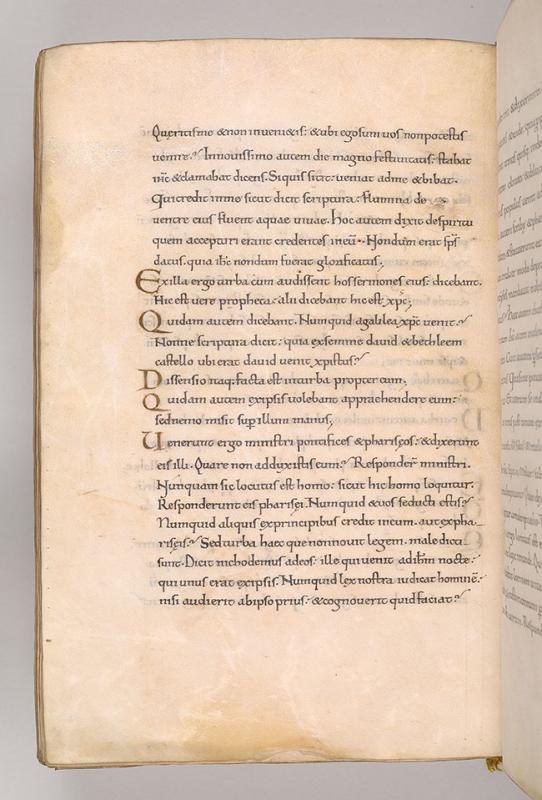 Queritis me & non inueni&is: & ubi ego sum uos non potestis
uenire? Innouissimo autem die magno festiuitatis: stabat
ihc & clamabat dicens. Siquis sitit: ueniat ad me & bibat.
Qui credit in me sicut dicit scriptura: flumina de
uentre eius fluent aquae uiuae. Hoc autem dixit de spiritu
quem accepturi erant credentes in eum. Nondum erat sps
datus. quia ihc nondum fuerat glorificatus;
Ex illa ergo turba cum audissent hos sermones eius: dicebant.
Hic est uere propheta: alii dicebant hic est xpc;
Quidam autem dicebant. Numquid a galilea xpc uenit?
Nonne scriptura dicit: quia ex semine dauid & bethleem
castello ubi erat dauid uenit xpistus?
Dissensio itaq; facta est in turba propter eum.
Quidam autem ex ipsis uolebant apprachendere eum:
sed nemo misit sup illum manus;
Uenerunt ergo ministri pontifices & phariseos: & dixerunt
eis illi. Quare non adduxistis eum? Responder ministri.
Nunquam sic locutus est homo: sicut hic homo loquitur.
Responderunt eis pharisei. Numquid & uos seducti estis?
Numquid aliquis ex principibus credit in eum. aut ex pha-
riseis? Sed turba haec quae non nouit legem. maledicti
sunt. Dicit nichodemus ad eos: ille qui uenit ad ihm nocte:
qui unus erat ex ipsis. Numquid lex nostra iudicat hominē:
nisi audierit ab ipso prius: & cognouerit quid faciat?